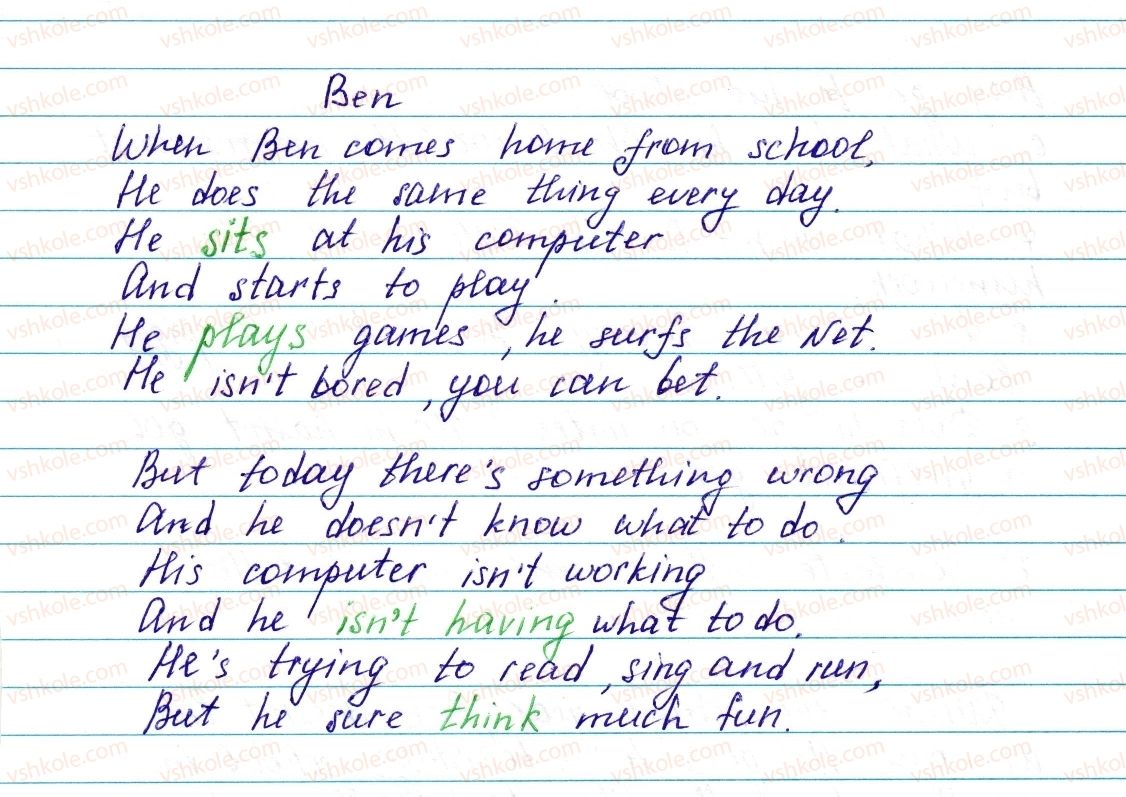 Ben
When Ben comes home from school,
He does the same thing every day.
He sits at his computer
And starts to play.
He plays games, he surfs the Net.
He isn't bored, you can bet.
But today there's something wrong
And he doesn't know what to do.
His computer isn't working
And he isn't having what to do.
He's trying to read, sing and run,
But he sure think much fun.